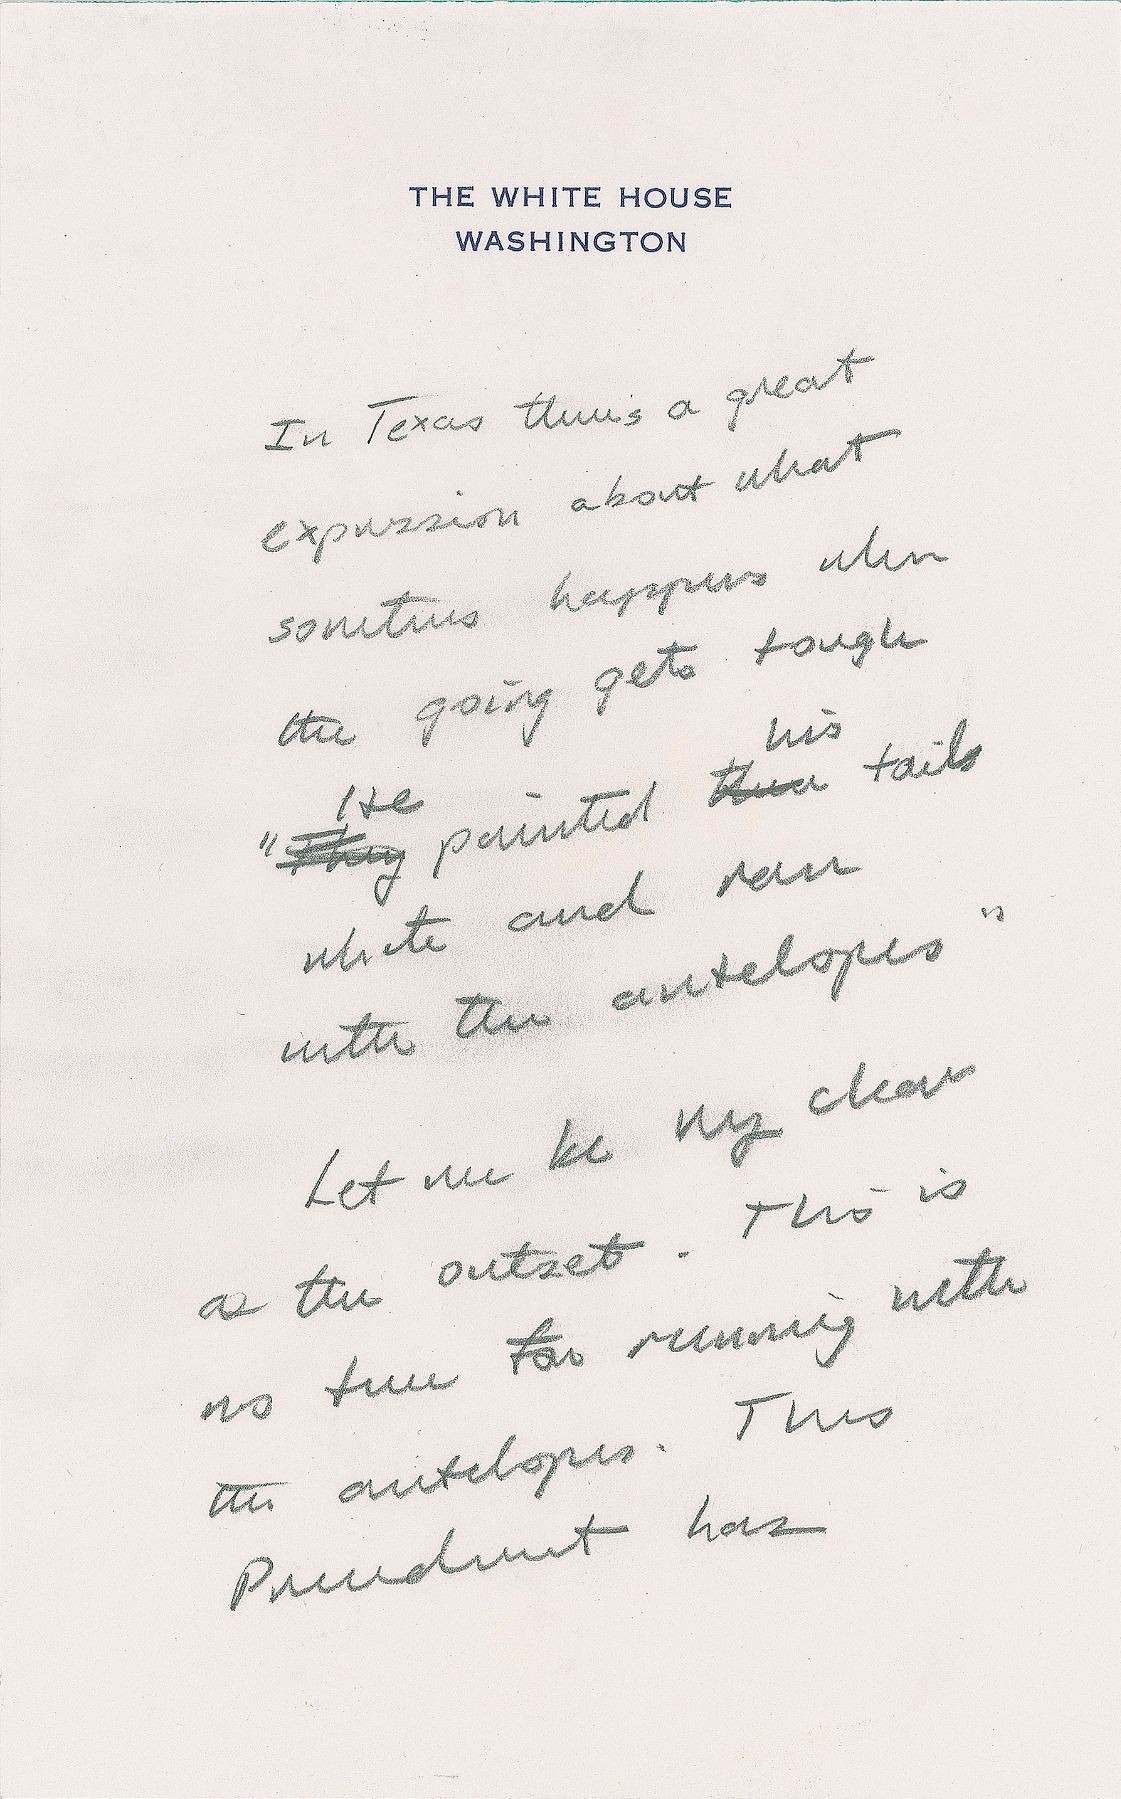 THE WHITE HOUSE
WASHINGTON
In Texas there's a great
expression about what
sometimes happens when
the going gets tough
He his
"They painted their tails
white and ran
with the antelopes"
Let me be very clear
as the outset. This is
no time for running with
the antelopes. This
President has